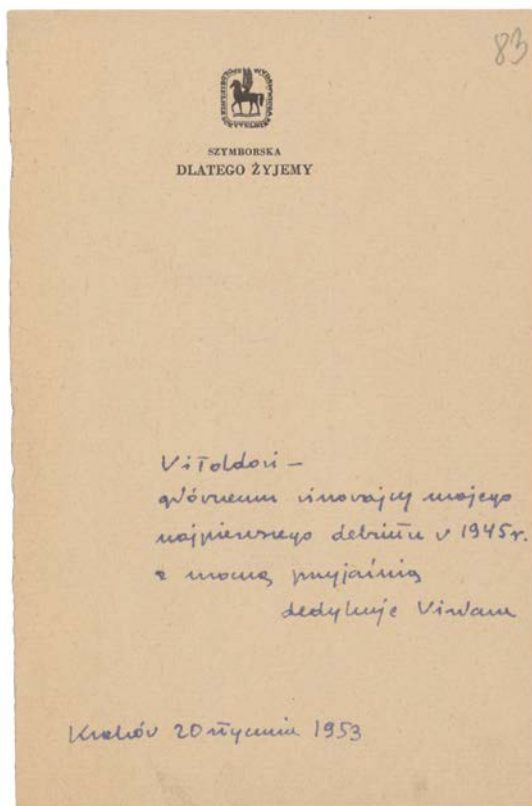 83
SZYMBORSKA
DLATEGO ŻYJEMY
Witoldowi –
głównemu winowajcy mojego
najpierwszego debiutu w 1945 r.
z mocną przyjaźnią
dedykuje
Kraków 20 stycznia 1953